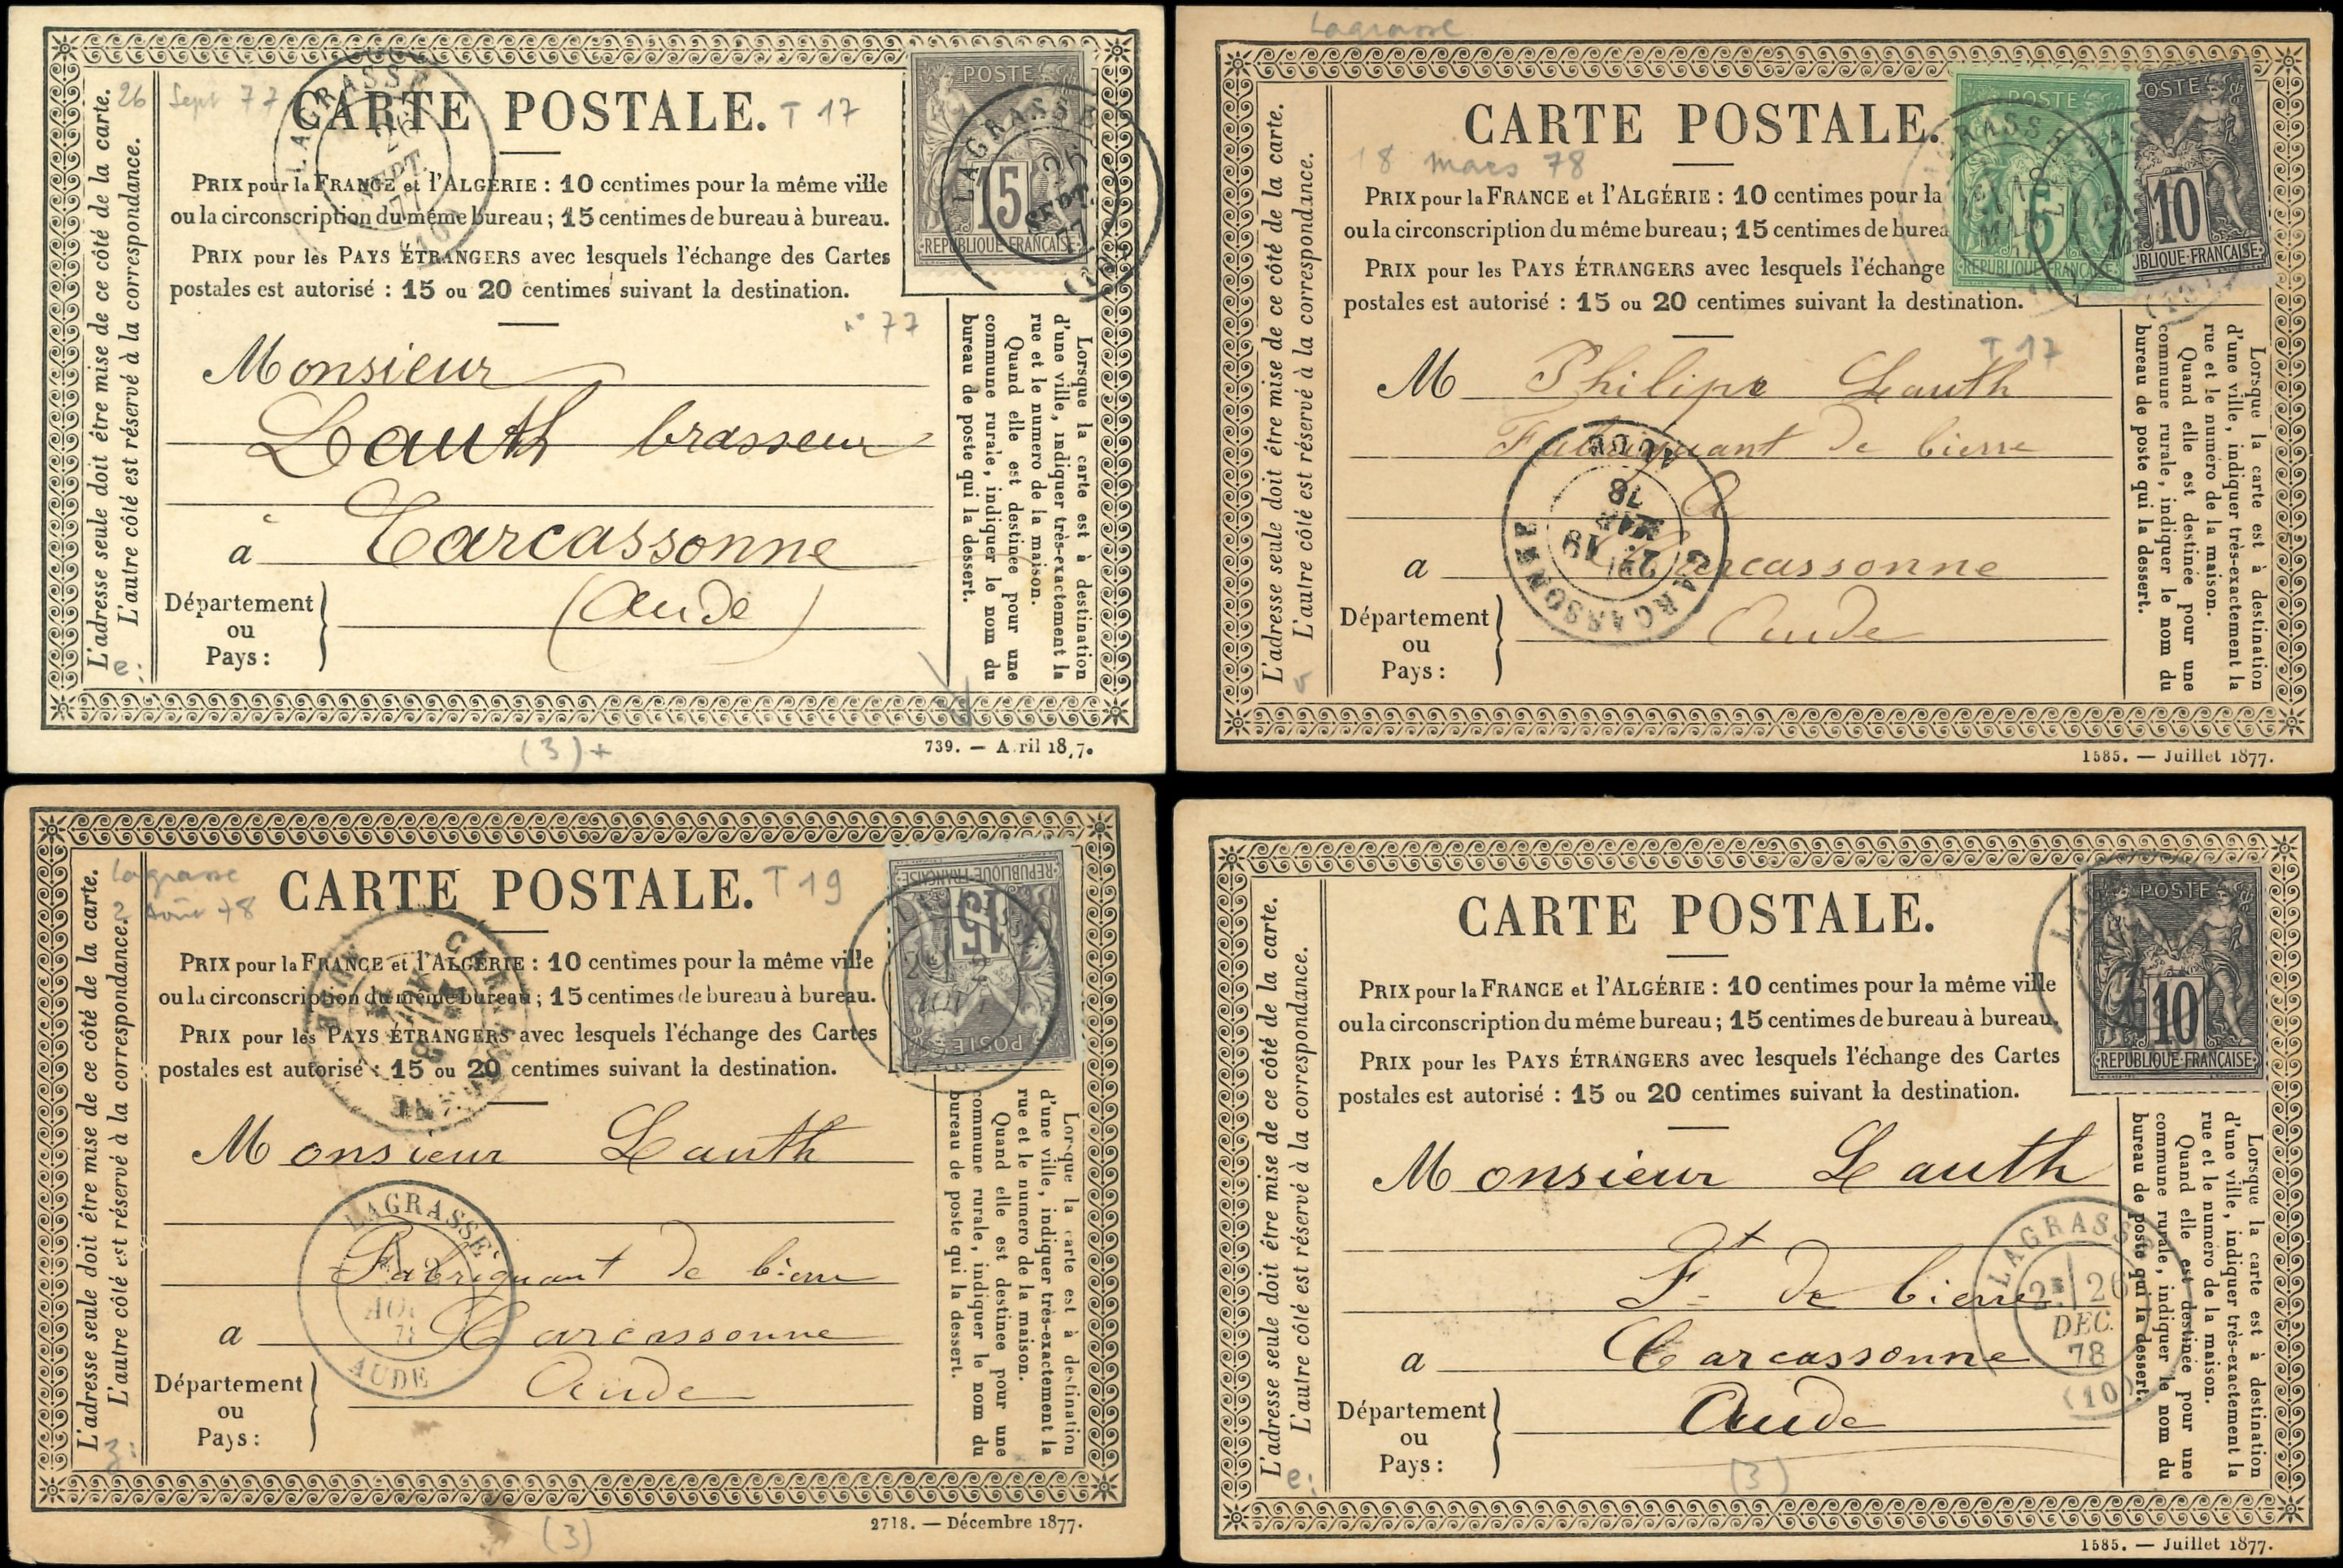 26 Sept 77
CARTE POSTALE.
T 17
PRIX pour la FRANCE et l'ALGÉRIE : 10 centimes pour la même ville
ou la circonscription du même bureau ; 15 centimes de bureau à bureau.
PRIX pour les PAYS ÉTRANGERS avec lesquels l'échange des Cartes
postales est autorisé : 15 ou 20 centimes suivant la destination.
n° 77
Monsieur
Lauth brasseur
a Carcassonne
Département
ou
Pays :
(Aude)
L'adresse seule doit être mise de ce côté de la carte.
L'autre côté est réservé à la correspondance.
e:
Lorsque la carte est à destination
d'une ville, indiquer très-exactement la
rue et le numéro de la maison.
Quand elle est destinée pour une
commune rurale, indiquer le nom du
bureau de poste qui la dessert.
LAGRASSE
26
SEPT.
77
(10)
POSTE
15
REPUBLIQUE FRANÇAISE
LAGRASSE
26
SEPT.
77
(3)+
739. — Avril 18,7.
Lagrasse
CARTE POSTALE.
18 mars 78
PRIX pour la FRANCE et l'ALGÉRIE : 10 centimes pour la
ou la circonscription du même bureau ; 15 centimes de burea
PRIX pour les PAYS ÉTRANGERS avec lesquels l'échange
postales est autorisé : 15 ou 20 centimes suivant la destination.
T 17
M Philipe Lauth
Fabriquant de bierre
A
a Carcassonne
Département
ou
Pays :
Aude
L'adresse seule doit être mise de ce côté de la carte.
L'autre côté est réservé à la correspondance.
Lorsque la carte est à destination
d'une ville, indiquer très-exactement la
rue et le numéro de la maison.
Quand elle est destinée pour une
commune rurale, indiquer le nom du
bureau de poste qui la dessert.
POSTE
5
REPUBLIQUE FRANÇAISE
OSTE
10
UBLIQUE FRANÇAISE
CARCASSONNE
2E 19
MAR
78
AUDE
1585. — Juillet 1877.
Lagrasse
2 Août 78
CARTE POSTALE.
T 19
PRIX pour la FRANCE et l'ALGÉRIE : 10 centimes pour la même ville
ou la circonscription du même bureau ; 15 centimes de bureau à bureau.
PRIX pour les PAYS ÉTRANGERS avec lesquels l'échange des Cartes
postales est autorisé : 15 ou 20 centimes suivant la destination.
Monsieur Lauth
Fabriquant de bierre
a Carcassonne
Département
ou
Pays :
Aude
L'adresse seule doit être mise de ce côté de la carte.
L'autre côté est réservé à la correspondance.
Lorsque la carte est à destination
d'une ville, indiquer très-exactement la
rue et le numéro de la maison.
Quand elle est destinée pour une
commune rurale, indiquer le nom du
bureau de poste qui la dessert.
POSTE
15
REPUBLIQUE FRANÇAISE
LAGRASSE
AOU
78
AUDE
(3)
2718. — Décembre 1877.
CARTE POSTALE.
PRIX pour la FRANCE et l'ALGÉRIE : 10 centimes pour la même ville
ou la circonscription du même bureau ; 15 centimes de bureau à bureau.
PRIX pour les PAYS ÉTRANGERS avec lesquels l'échange des Cartes
postales est autorisé : 15 ou 20 centimes suivant la destination.
Monsieur Lauth
Ft de bierre
a Carcassonne
Département
ou
Pays :
Aude
L'adresse seule doit être mise de ce côté de la carte.
L'autre côté est réservé à la correspondance.
e:
Lorsque la carte est à destination
d'une ville, indiquer très-exactement la
rue et le numéro de la maison.
Quand elle est destinée pour une
commune rurale, indiquer le nom du
bureau de poste qui la dessert.
POSTE
10
REPUBLIQUE FRANÇAISE
LAGRASSE
2E 26
DEC.
78
(10)
(3)
1585. — Juillet 1877.